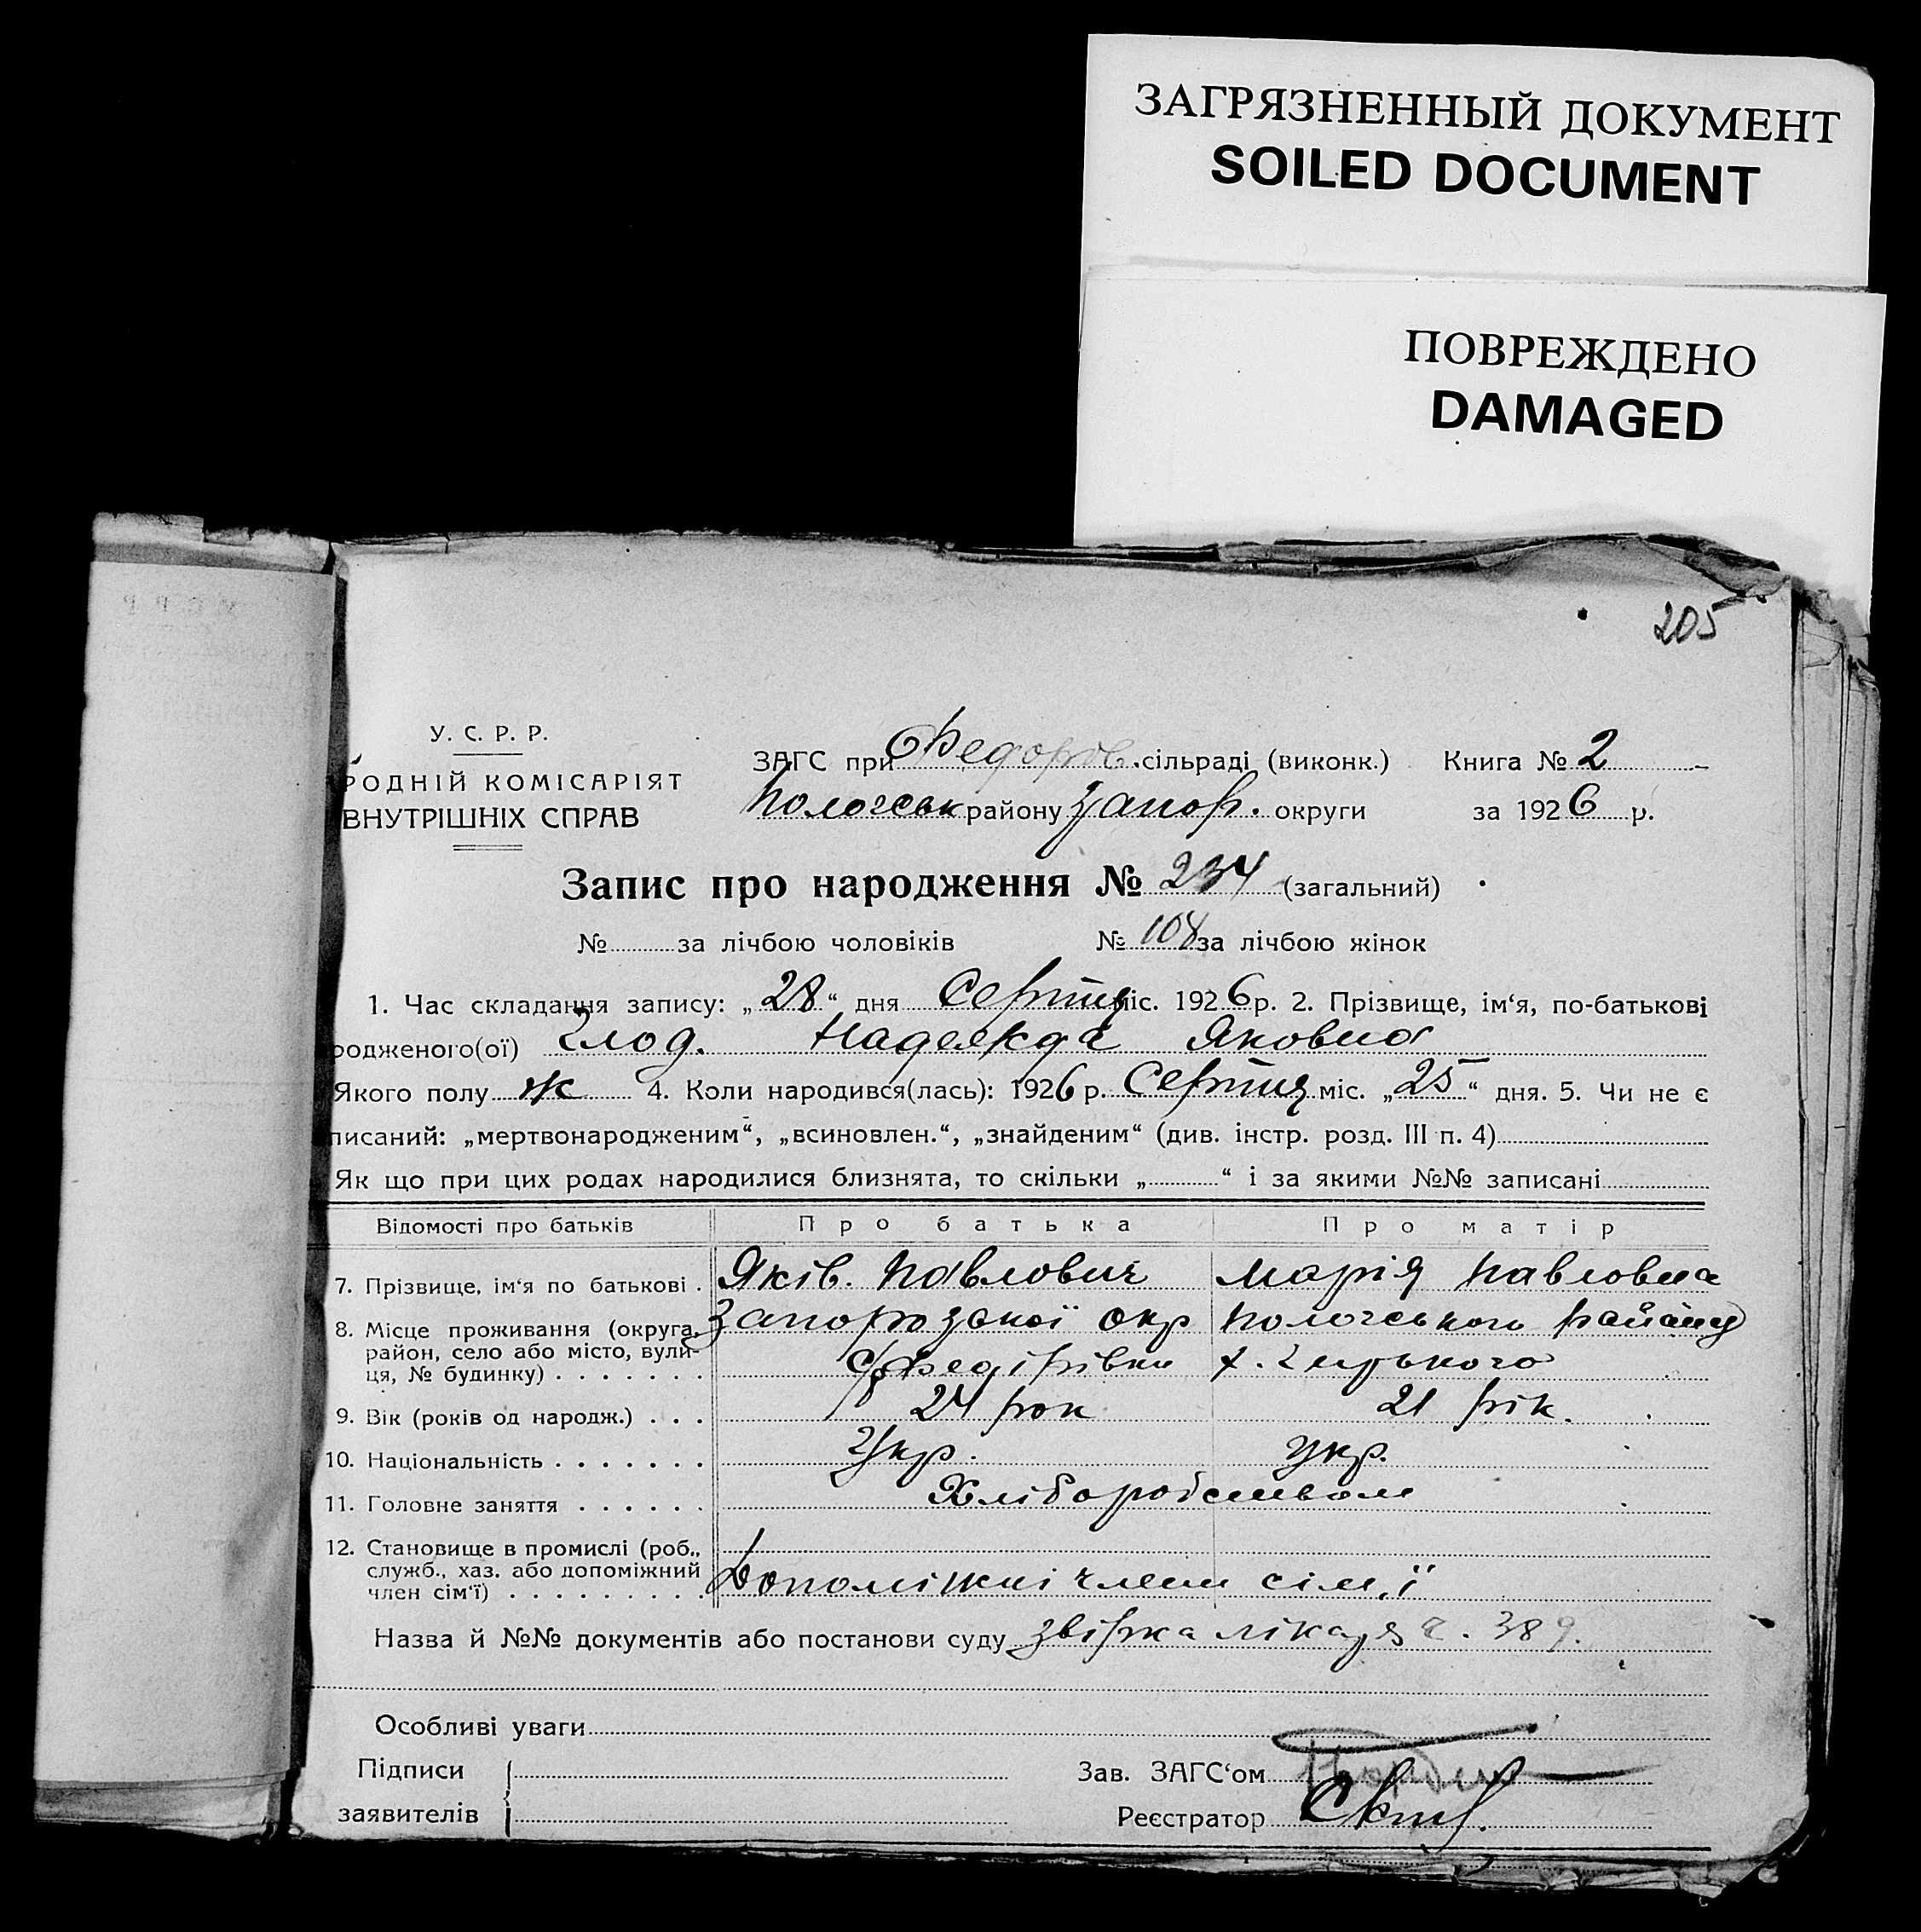 ЗАГРЯЗНЕННЫЙ ДОКУМЕНТ
SOILED DOCUMENT
ПОВРЕЖДЕНО
DAMAGED
205
У. С. Р. Р.
РОДНІЙ КОМІСАРІЯТ
ВНУТРІШНІХ СПРАВ
ЗАГС при Федоров. сільраді (виконк.) Книга № 2
Пологськ району Запор. округи за 1926 р.
Запис про народження № 234 (загальний)
№ за лічбою чоловіків № 108 за лічбою жінок
1. Час складання запису: „28“ дня Серпня міс. 1926 р. 2. Прізвище, ім‘я, по-батькові
родженого(ої) Глод. Надежда Яковна
Якого полу ж 4. Коли народився(лась): 1926 р. Серпня міс. „25“ дня. 5. Чи не є
писаний: „мертвонародженим“, „всиновлен.“, „знайденим“ (див. інстр. розд. III п. 4)
Як що при цих родах народилися близнята, то скільки „ “ і за якими №№ записані
Відомості про батьків Про батька Про матір
7. Прізвище, ім‘я по батькові . Яків. Павлович Марія Павловна
8. Місце проживання (округа, район, село або місто, вулиця, № будинку) . . . . . . . Запорозької окр Пологського району
с/р Федірівки х.
9. Вік (років од народж.) . . . 24 рок 21 рік.
10. Національність . . . . . . . Укр. укр.
11. Головне заняття . . . . . . Хліборобством
12. Становище в промислі (роб., служб., хаз. або допоміжний член сім‘ї) . . . . . . . . . Допоміжні члени сім,ї
Назва й №№ документів або постанови суду звірка лікаря ч. 389.
Особливі уваги
Підписи
заявителів
Зав. ЗАГС‘ом
Реєстратор